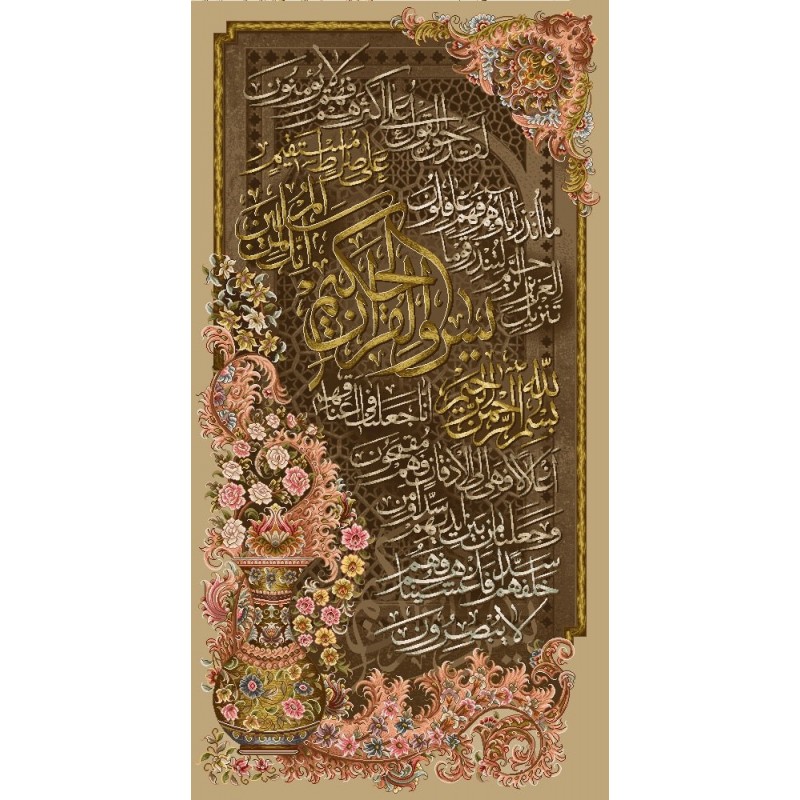 بسم الله الرحمن الرحيم
يس والقرآن الحكيم
انك لمن المرسلين
على صراط مستقيم
تنزيل
العزيز الرحيم لتنذر قوما
ما انذر آباؤهم فهم غافلون
لقد حق القول على اكثرهم
فهم لا يؤمنون
انا جعلنا في اعناقهم
اغلالا فهي الى الاذقان فهم مقمحون
وجعلنا من بين ايديهم سدا ومن
خلفهم سدا فاغشيناهم فهم
لا يبصرون